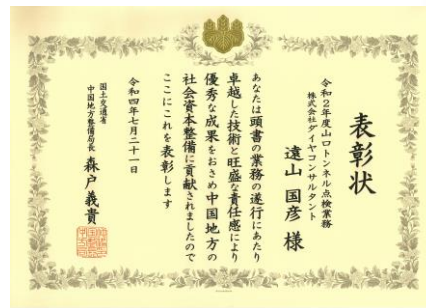 表彰状
令和２年度山口トンネル点検業務
株式会社ダイヤコンサルタント
遠山国彦 様
あなたは頭書の業務の遂行にあたり
卓越した技術と旺盛な責任感により
優秀な成果をおさめ中国地方の
社会資本整備に貢献されましたので
ここにこれを表彰します
令和四年七月二十一日
国土交通省
中国地方整備局長 森戸義貴